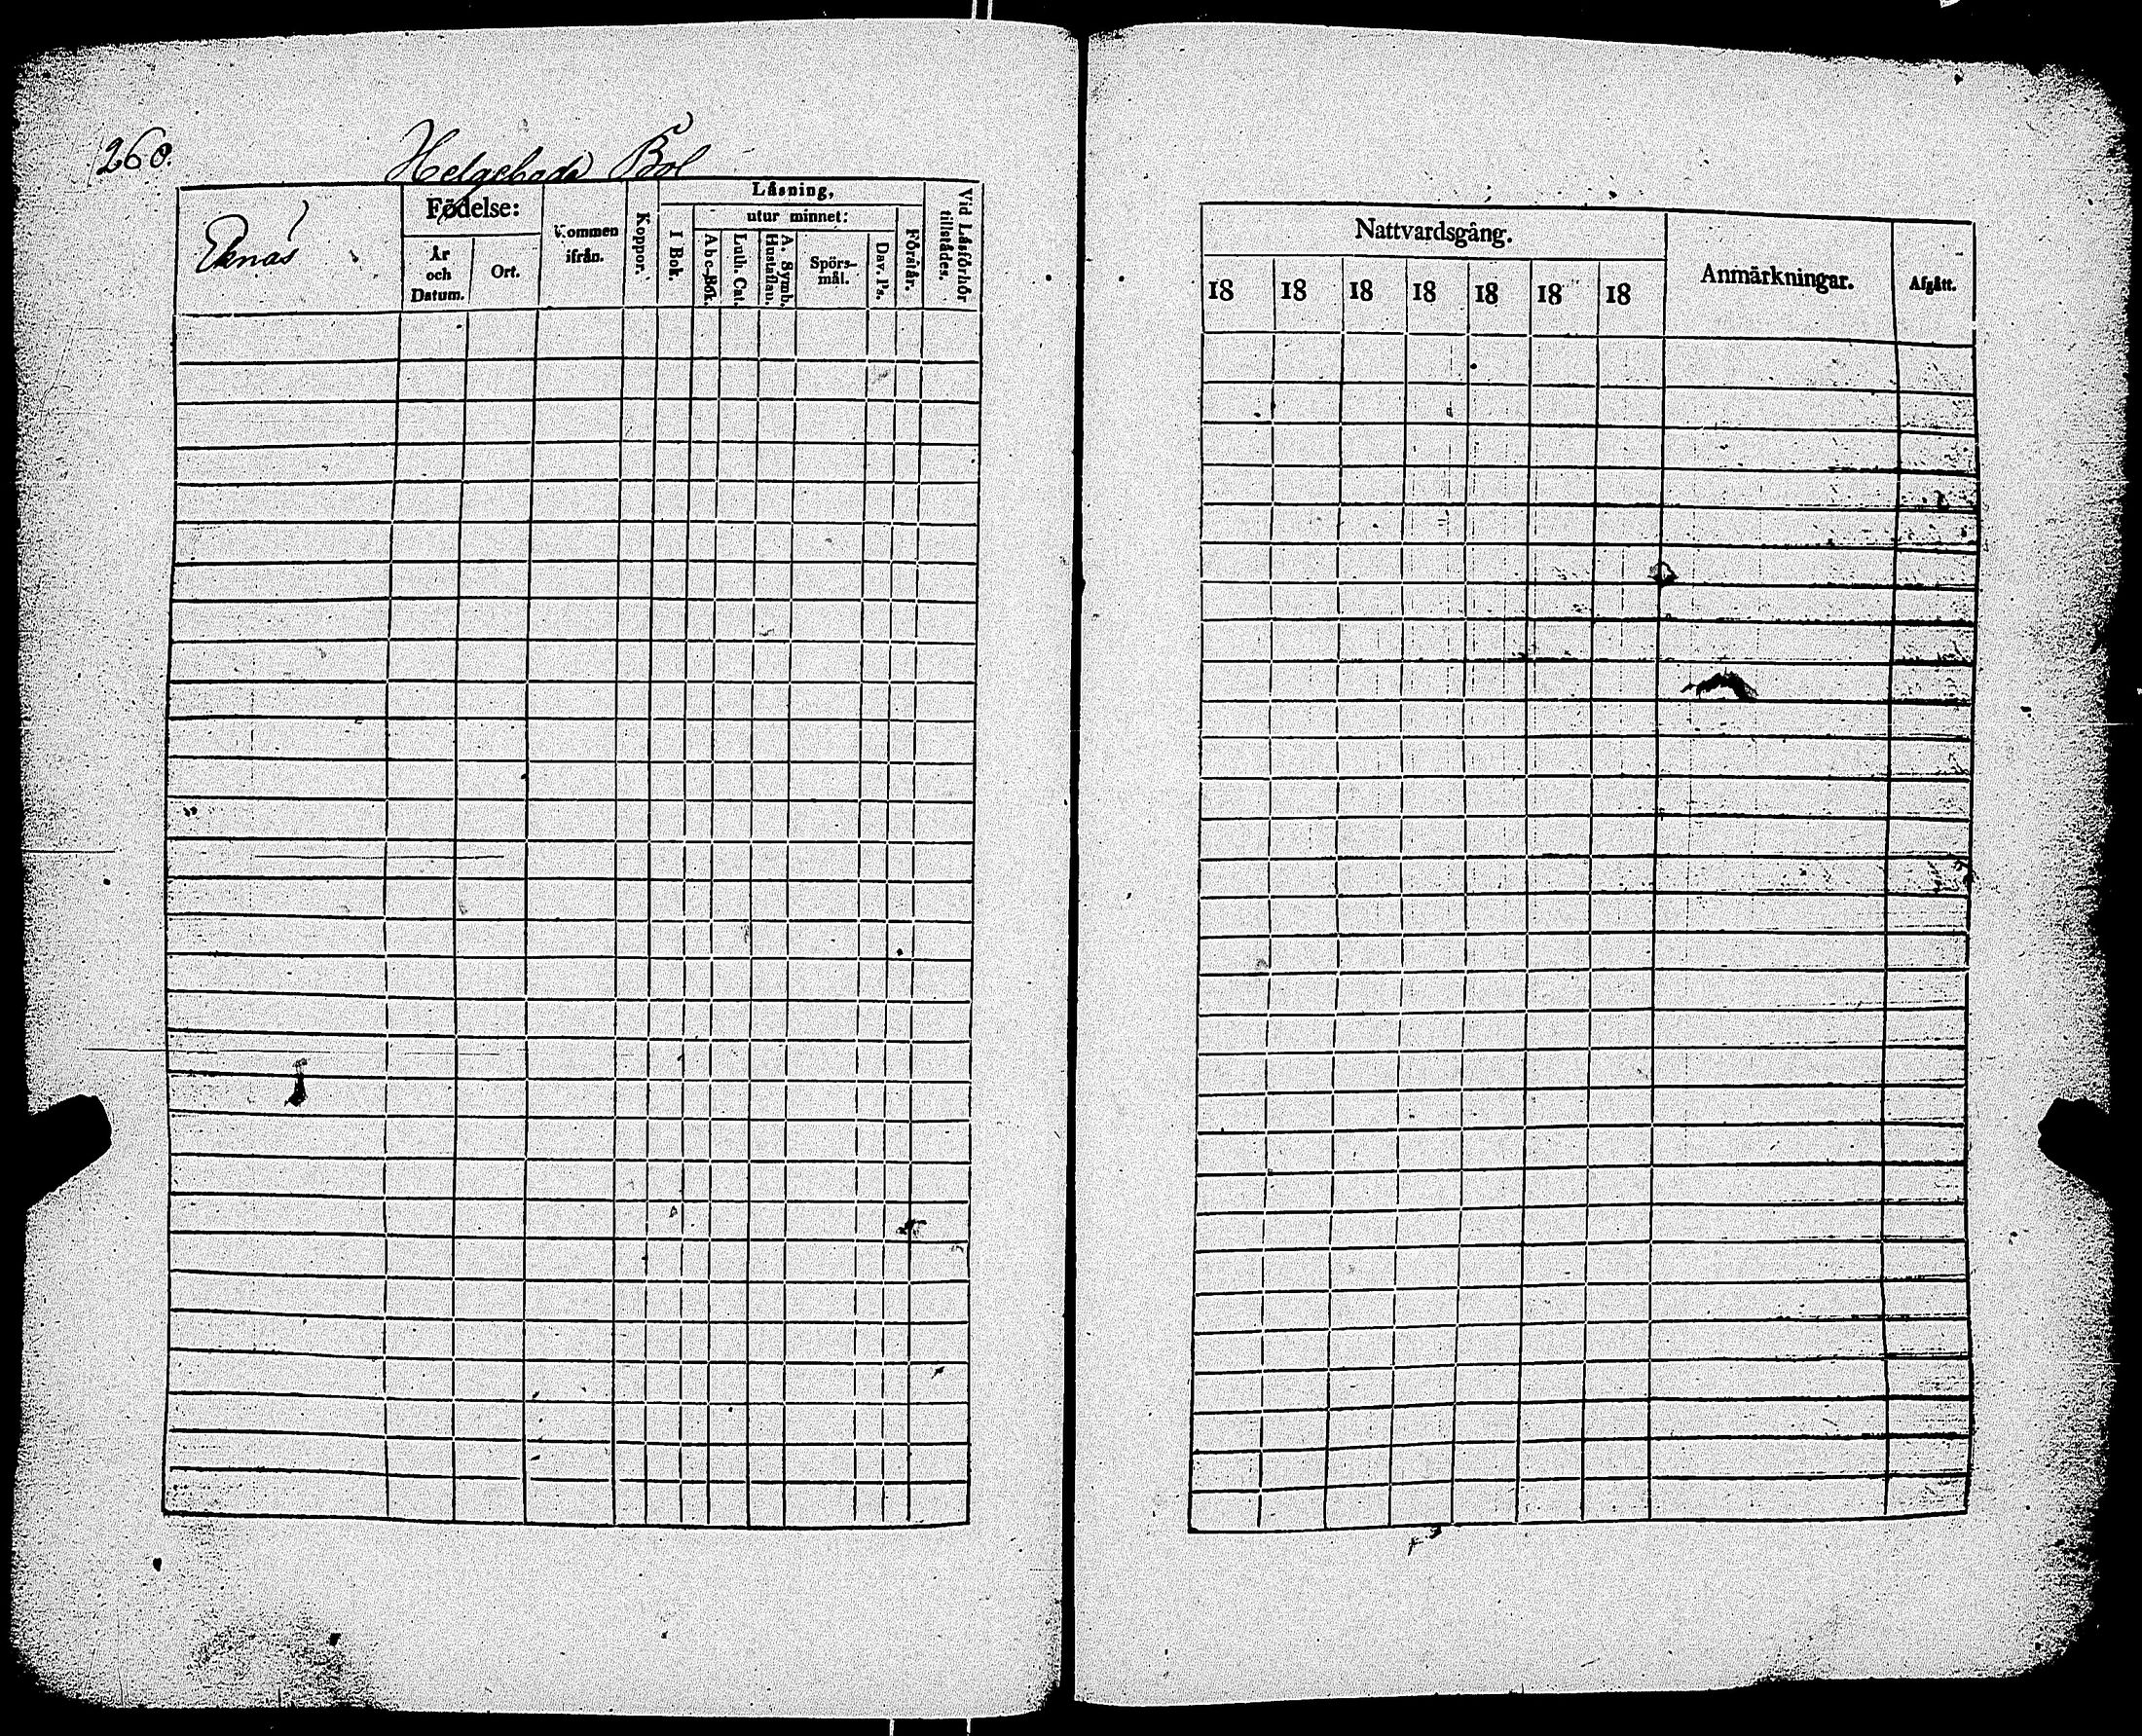 260.
Helgeboda Bol
Eknäs
Födelse:
År och Datum.
Ort.
Kommen ifrån.
Koppor.
Läsning,
I Bok.
utur minnet:
Abc-Bok.
Luth. Cat.
A. Symb. Hustaflan.
Spörs-mål.
Dav. Ps.
Förstår.
Vid Läsförhör tillstädes.
Nattvardsgång.
18 18 18 18 18 18 18
Anmärkningar.
Afgått.